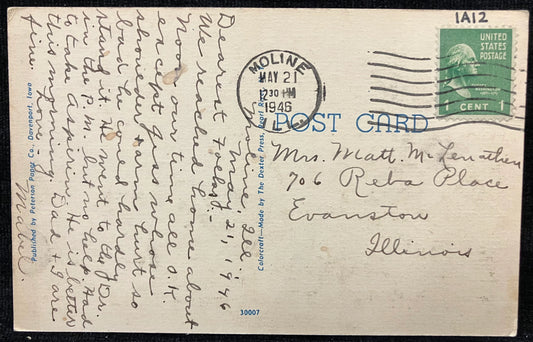 1A12
UNITED
STATES
POSTAGE
WASHINGTON
1 CENT 1
MOLINE
MAY 21
12 30 PM
1946
ILL.
POST CARD
Mrs. Matt. McLenathen
706 Reba Place
Evanston
Illinois
Moline, Ill.
May 21, 1946
Dearest Folks:
We reached home about
Noon our time all O.K.
except Gus whose
shoulder & arm hurt so
bad he could hardly
stand it. He went to the Dr.
in the P.M. but no help. Had
to take Aspirin. He is better
this morning. Dad & I are
fine.
Mabel.
Published by Peterson Paper Co., Davenport, Iowa
Colorcraft—Made by The Dexter Press, Pearl River
30007